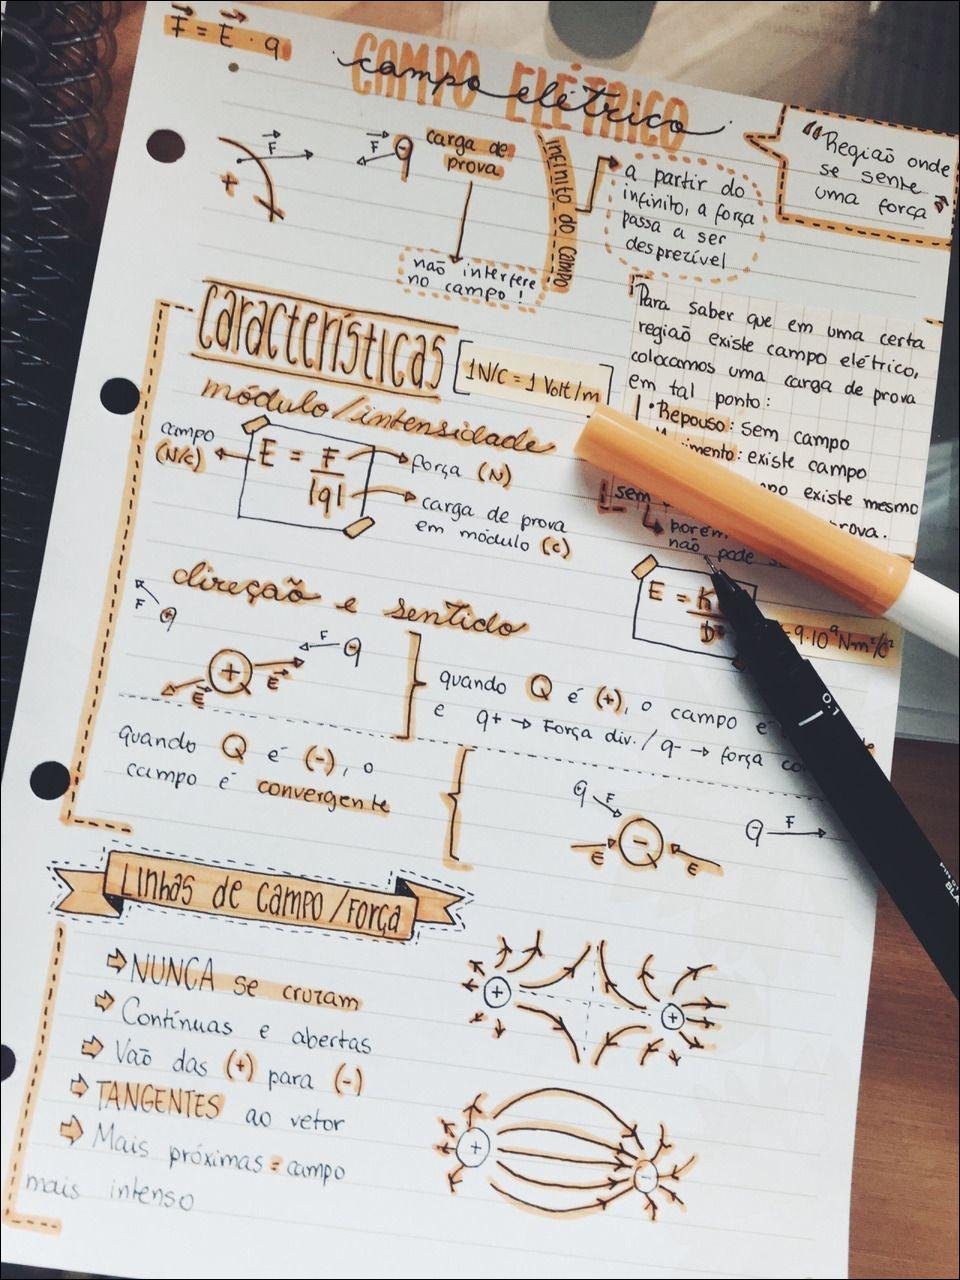 F = E · q
CAMPO ELÉTRICO
campo elétrico
"Região onde
se sente
uma força"
F
+
F
q
carga de
prova
não interfere
no campo!
infinito do campo
a partir do
infinito, a força
passa a ser
desprezível
Características
1N/C = 1 Volt/m
Para saber que em uma certa
região existe campo elétrico,
colocamos uma carga de prova
em tal ponto:
Repouso: sem campo
: existe campo
existe mesmo
sem
rova.
porém
não pode
módulo/intensidade
campo
(N/C)
E = F
|q|
força (N)
carga de prova
em módulo (C)
E = K
= 9·10⁹ Nm²/C²
direção e sentido
F
F
+
E
E
quando Q é (+), o campo é
e q+ → Força div. / q- → força co
quando Q é (-), o
campo é convergente
q F
-
E
E
F
Linhas de Campo/Força
⇨ NUNCA se cruzam
⇨ Contínuas e abertas
⇨ Vão das (+) para (-)
⇨ TANGENTES ao vetor
⇨ Mais próximas = campo
mais intenso
+
+
+
-
0.1